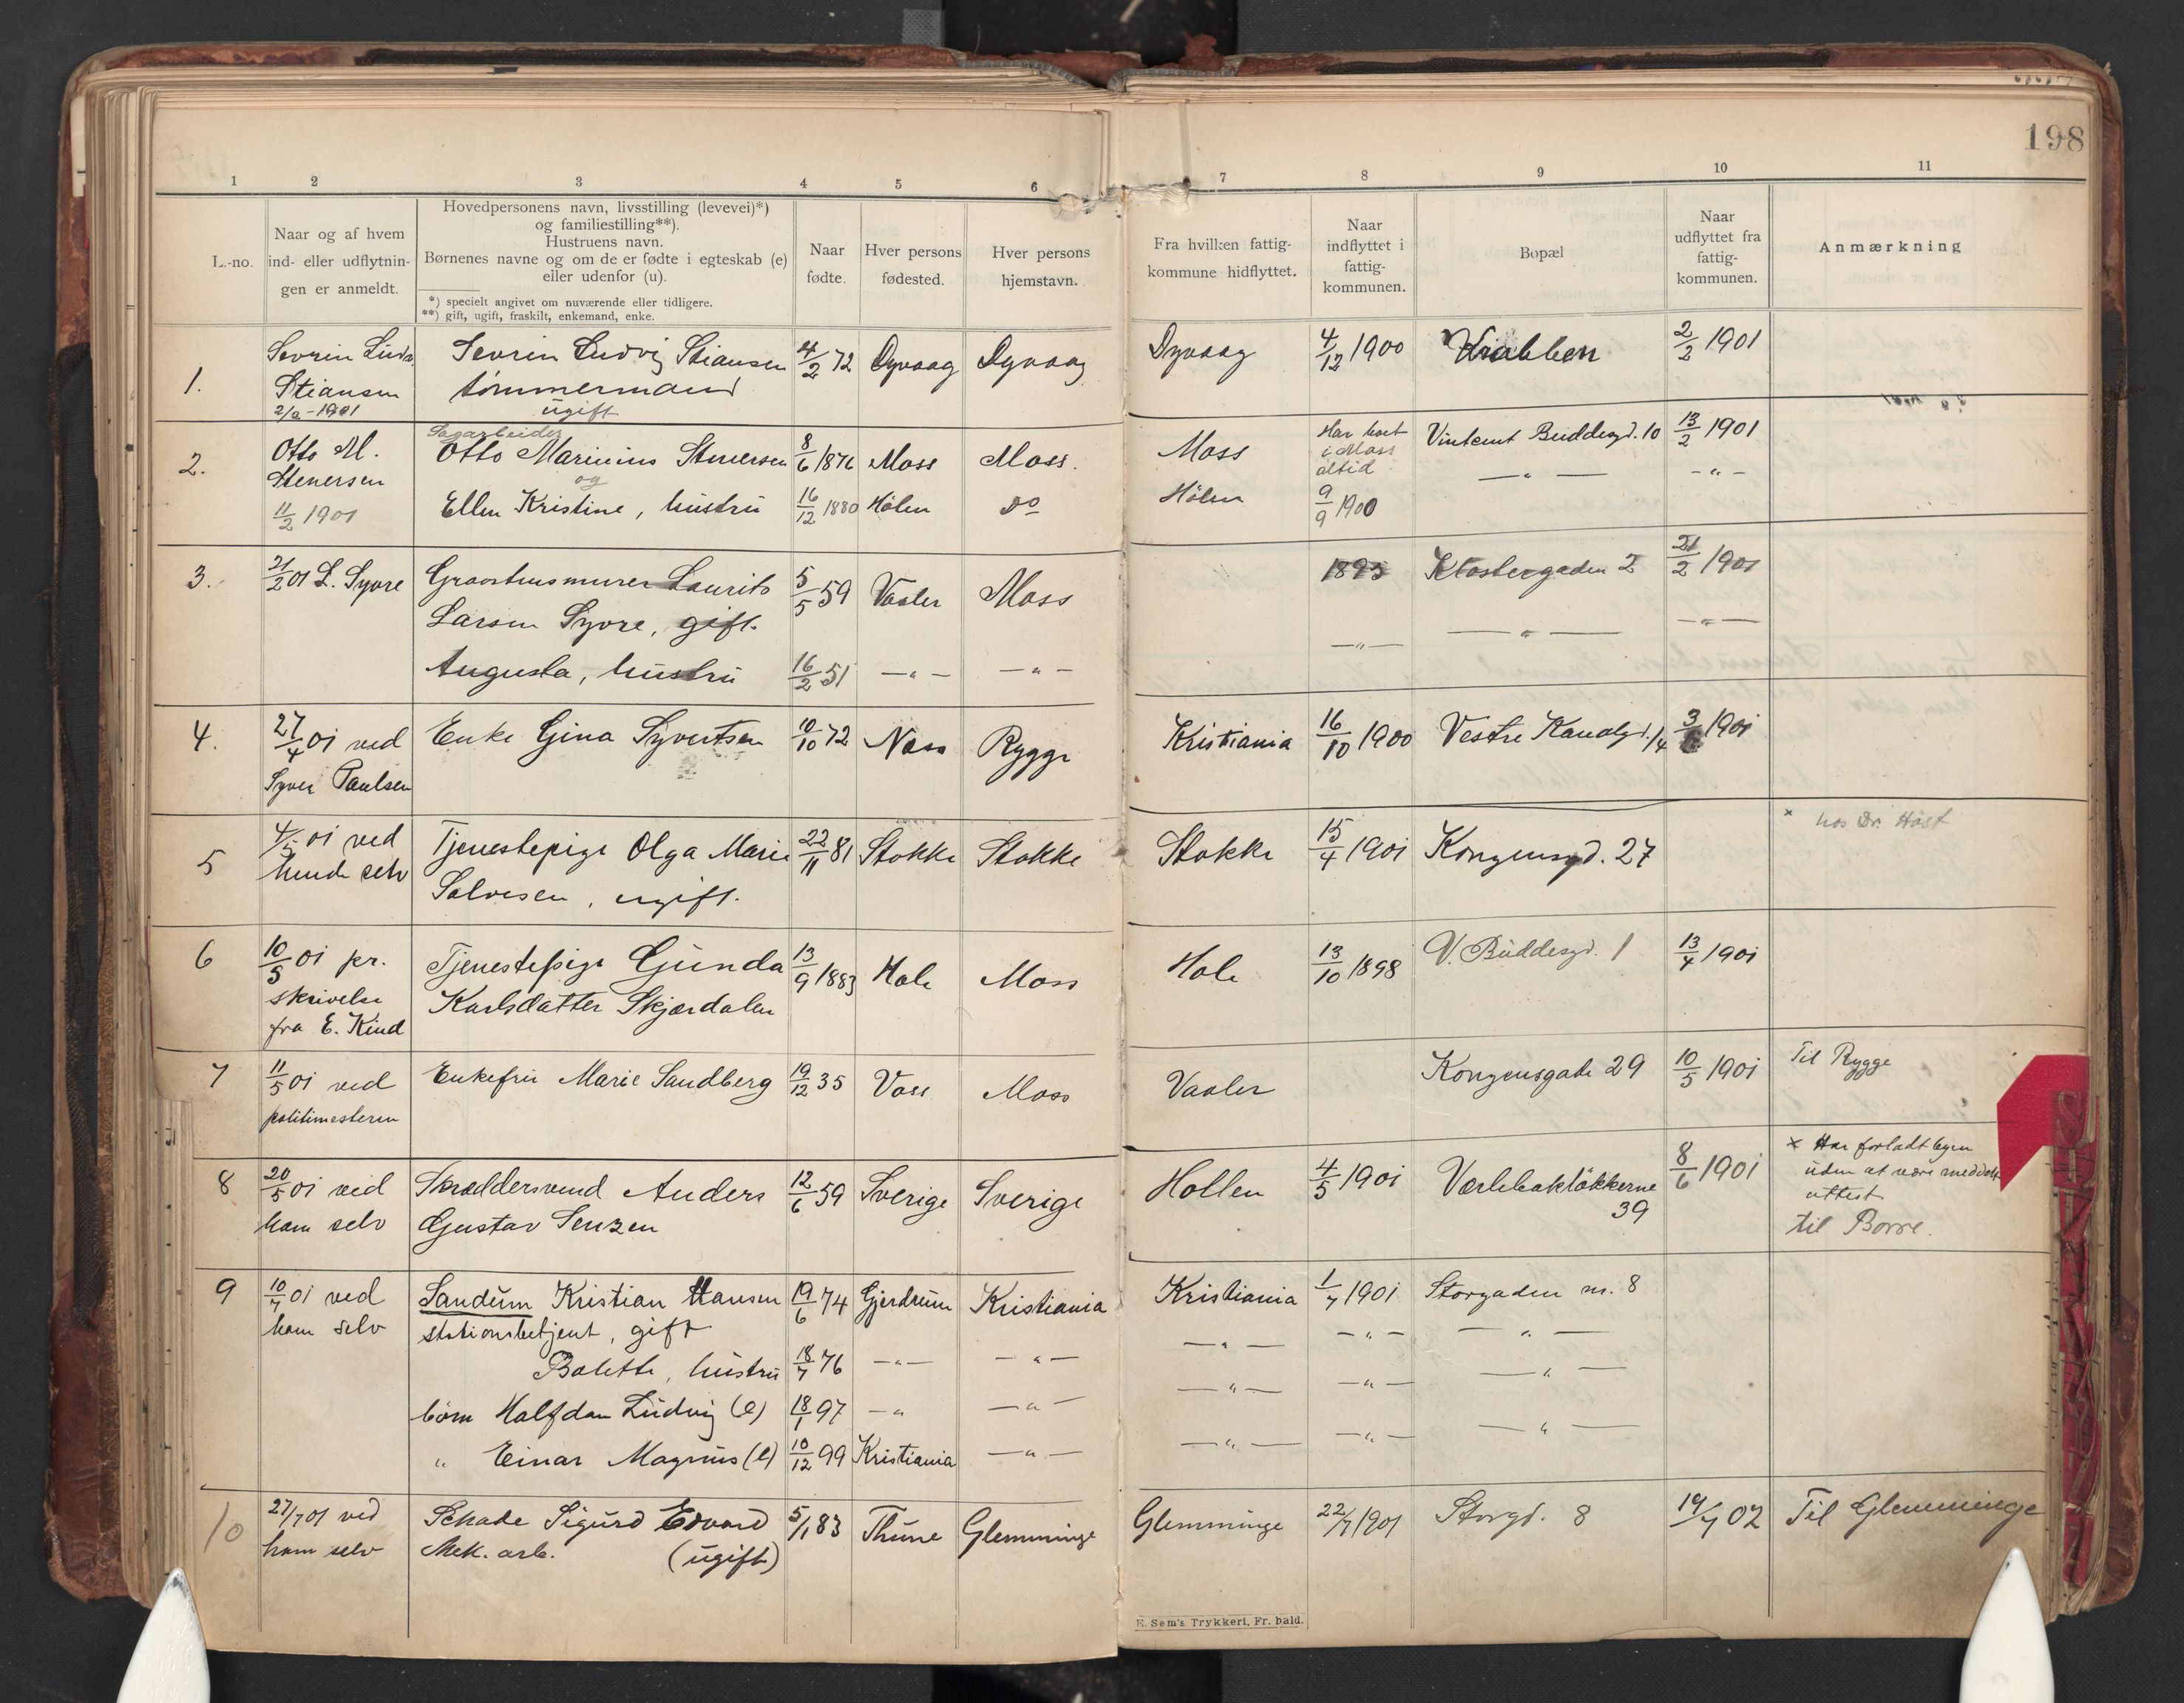 198
1 2 3 4 5 6 7 8 9 10 11
L.-no.
Naar og af hvem
ind- eller udflytnin-
gen er anmeldt.
Hovedpersonens navn, livsstilling (levevei)*)
og familiestilling**).
Hustruens navn.
Børnenes navne og om de er fødte i egteskab (e)
eller udenfor (u).
*) specielt angivet om nuværende eller tidligere.
**) gift, ugift, fraskilt, enkemand, enke.
Naar
fødte.
Hver persons
fødested.
Hver persons
hjemstavn.
Fra hvilken fattig-
kommune hidflyttet.
Naar
indflyttet i
fattig-
kommunen.
Bopæl
Naar
udflyttet fra
fattig-
kommunen.
Anmærkning
1. Sevrin Ludv. Sevrin Ludvig Stiansen 4/2 72 Dyvaag Dyvaag Dyvaag 4/12 1900 Krabben 2/2 1901
Stiansen tømmermand
2/2-1901 ugift
Sagarbeider
2. Otto M. Otto Marinius Stenersen 8/6 1876 Moss Moss. Moss Har boet i Moss altid Vintcent Buddesgd. 10 13/2 1901
Stenersen og
11/2 1901 Ellen Kristine, hustru 16/12 1880 Hölen do Hölen 9/9 1900 — " — - " -
3. 21/2 01 L. Syvre Graastensmurer Laurits 5/5 59 Vaaler Moss 1895 Klostergaden 2 21/2 1901
Larsen Syvre, gift.
Augusta, hustru 16/2 51 — " — — " — — " — — " — — " —
4. 27/4 01 ved Enke Gina Syvertsen 10/10 72 Næss Rygge Kristiania 16/10 1900 Vestre Kanalgd. 14 3/6 1901
Syver Paulsen
5 4/5 01 ved Tjenestepige Olga Marie 22/11 81 Stokke Stokke Stokke 15/4 1901 Kongensgd. 27 × hos Dr. Høst
hende selv Salvesen, ugift.
6 10/5 01 pr. Tjenestepige Gunda 13/9 1883 Hole Moss Hole 13/10 1898 V. Buddesgd. 1 13/4 1901
skrivelse Karlsdatter Skjærdalen
fra E. Kind
7 11/5 01 ved Enkefru Marie Sandberg 19/12 35 Voss Moss Vaaler Kongensgade 29 10/5 1901 Til Rygge
politimesteren
8 20/5 01 ved Skræddersvend Anders 12/6 59 Sverige Sverige Hollen 4/5 1901 Værlebakløkkerne 39 8/6 1901 × Har forladt byen
ham selv Gustav Senzen uden at være meddelt
attest
til Borre.
9 10/7 01 ved Sandum Kristian Hansen 19/6 74 Gjerdrum Kristiania Kristiania 1/7 1901 Storgaden nr. 8
ham selv stationsbetjent, gift
Bolette, hustru 18/7 76 — " — — " — — " — — " — — " —
børn Halfdan Ludvig (e) 18/1 97 — " — " — — " — — " — — " —
" Einar Magnus (e) 10/12 99 Kristiania — " — — " — — " — — " —
10 27/7 01 ved Schade Sigurd Edvard 5/1 83 Thune Glemminge Glemminge 22/7 1901 Storgd. 8 19/7 02 Til Glemminge
ham selv Mek. arb. (ugift)
E. Sem's Trykkeri, Fr. hald.